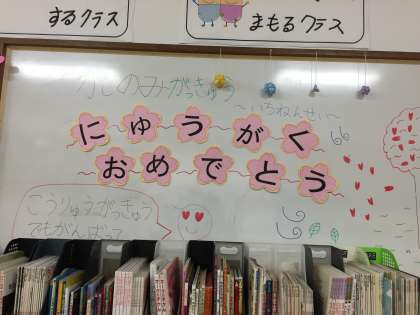 するクラス
まもるクラス
のみがっきゅう
～いちねんせい～
にゅうがく
おめでとう
こうりゅうがっきゅう
でもがんばって